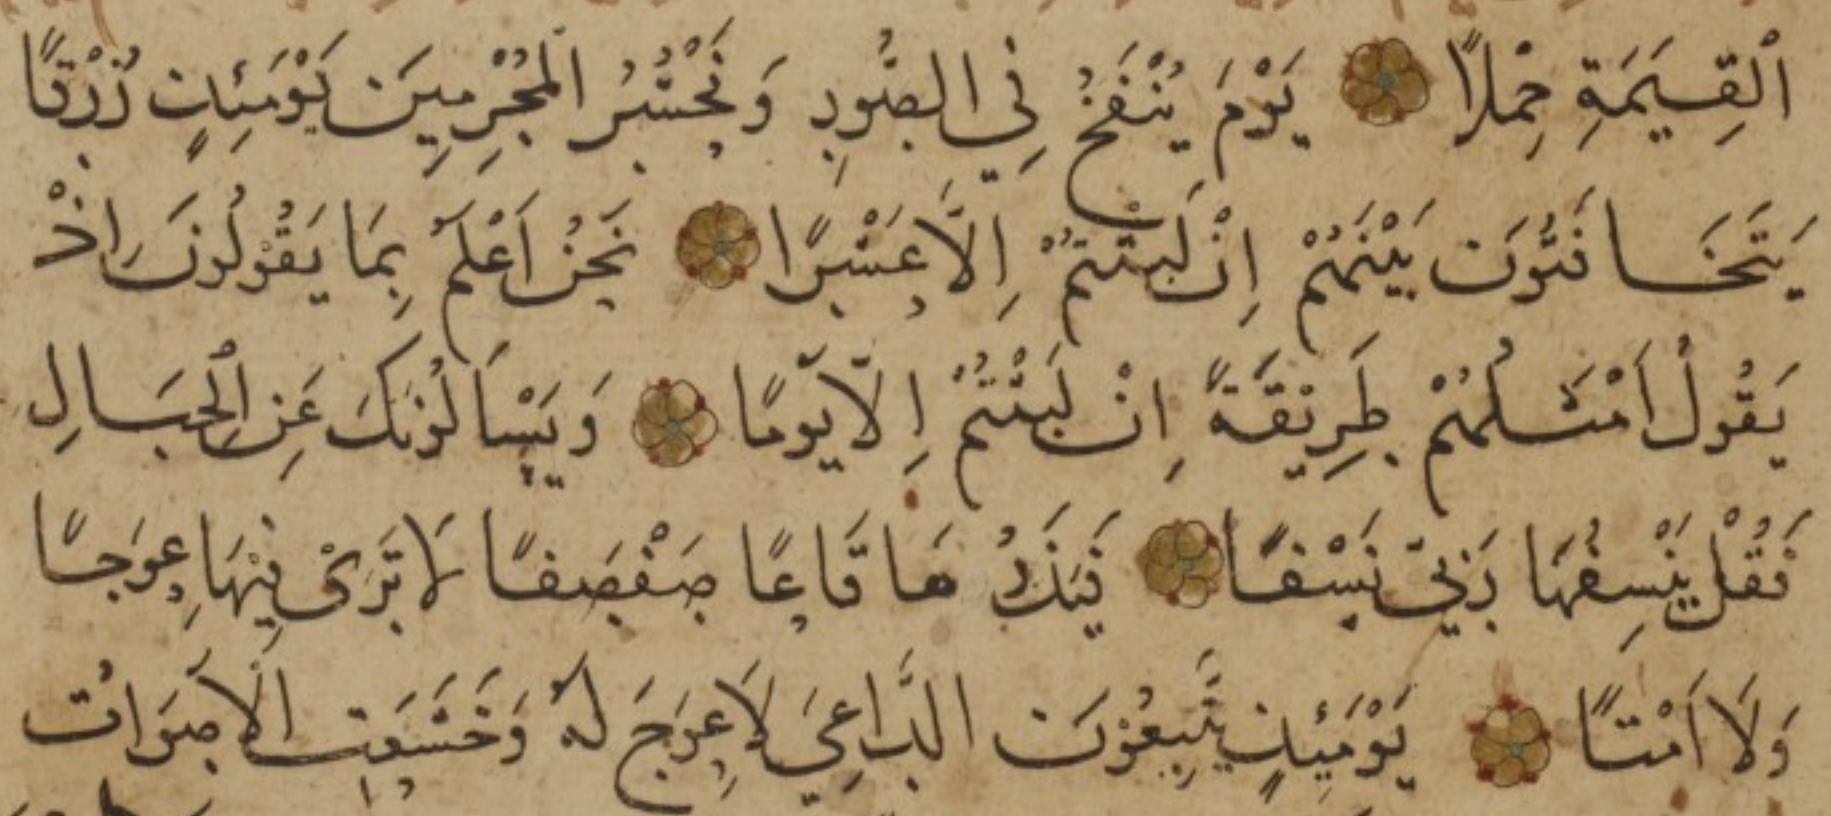 ٱلْقِيَمَةِ حِمْلًا يَوْمَ يُنْفَخُ فِي الصُّورِ وَنَحْشُرُ الْمُجْرِمِينَ يَوْمَئِذٍ زُرْقًا
يَتَخَافَتُونَ بَيْنَهُمْ اِنْ لَبِثْتُمْ اِلَّا عَشْرًا نَحْنُ اَعْلَمُ بِمَا يَقُولُونَ اِذْ
يَقُولُ اَمْثَلُهُمْ طَرِيقَةً اِنْ لَبِثْتُمْ اِلَّا يَوْمًا وَيَسْاَلُونَكَ عَنِ الْجِبَالِ
فَقُلْ يَنْسِفُهَا رَبِّي نَسْفًا فَيَذَرُهَا قَاعًا صَفْصَفًا لَا تَرَىٰ فِيْهَا عِوَجًا
وَلَا اَمْتًا يَوْمَئِذٍ يَتَّبِعُوْنَ الدَّاعِيَ لَا عِوَجَ لَهُ وَخَشَعَتِ الْاَصْوَاتُ